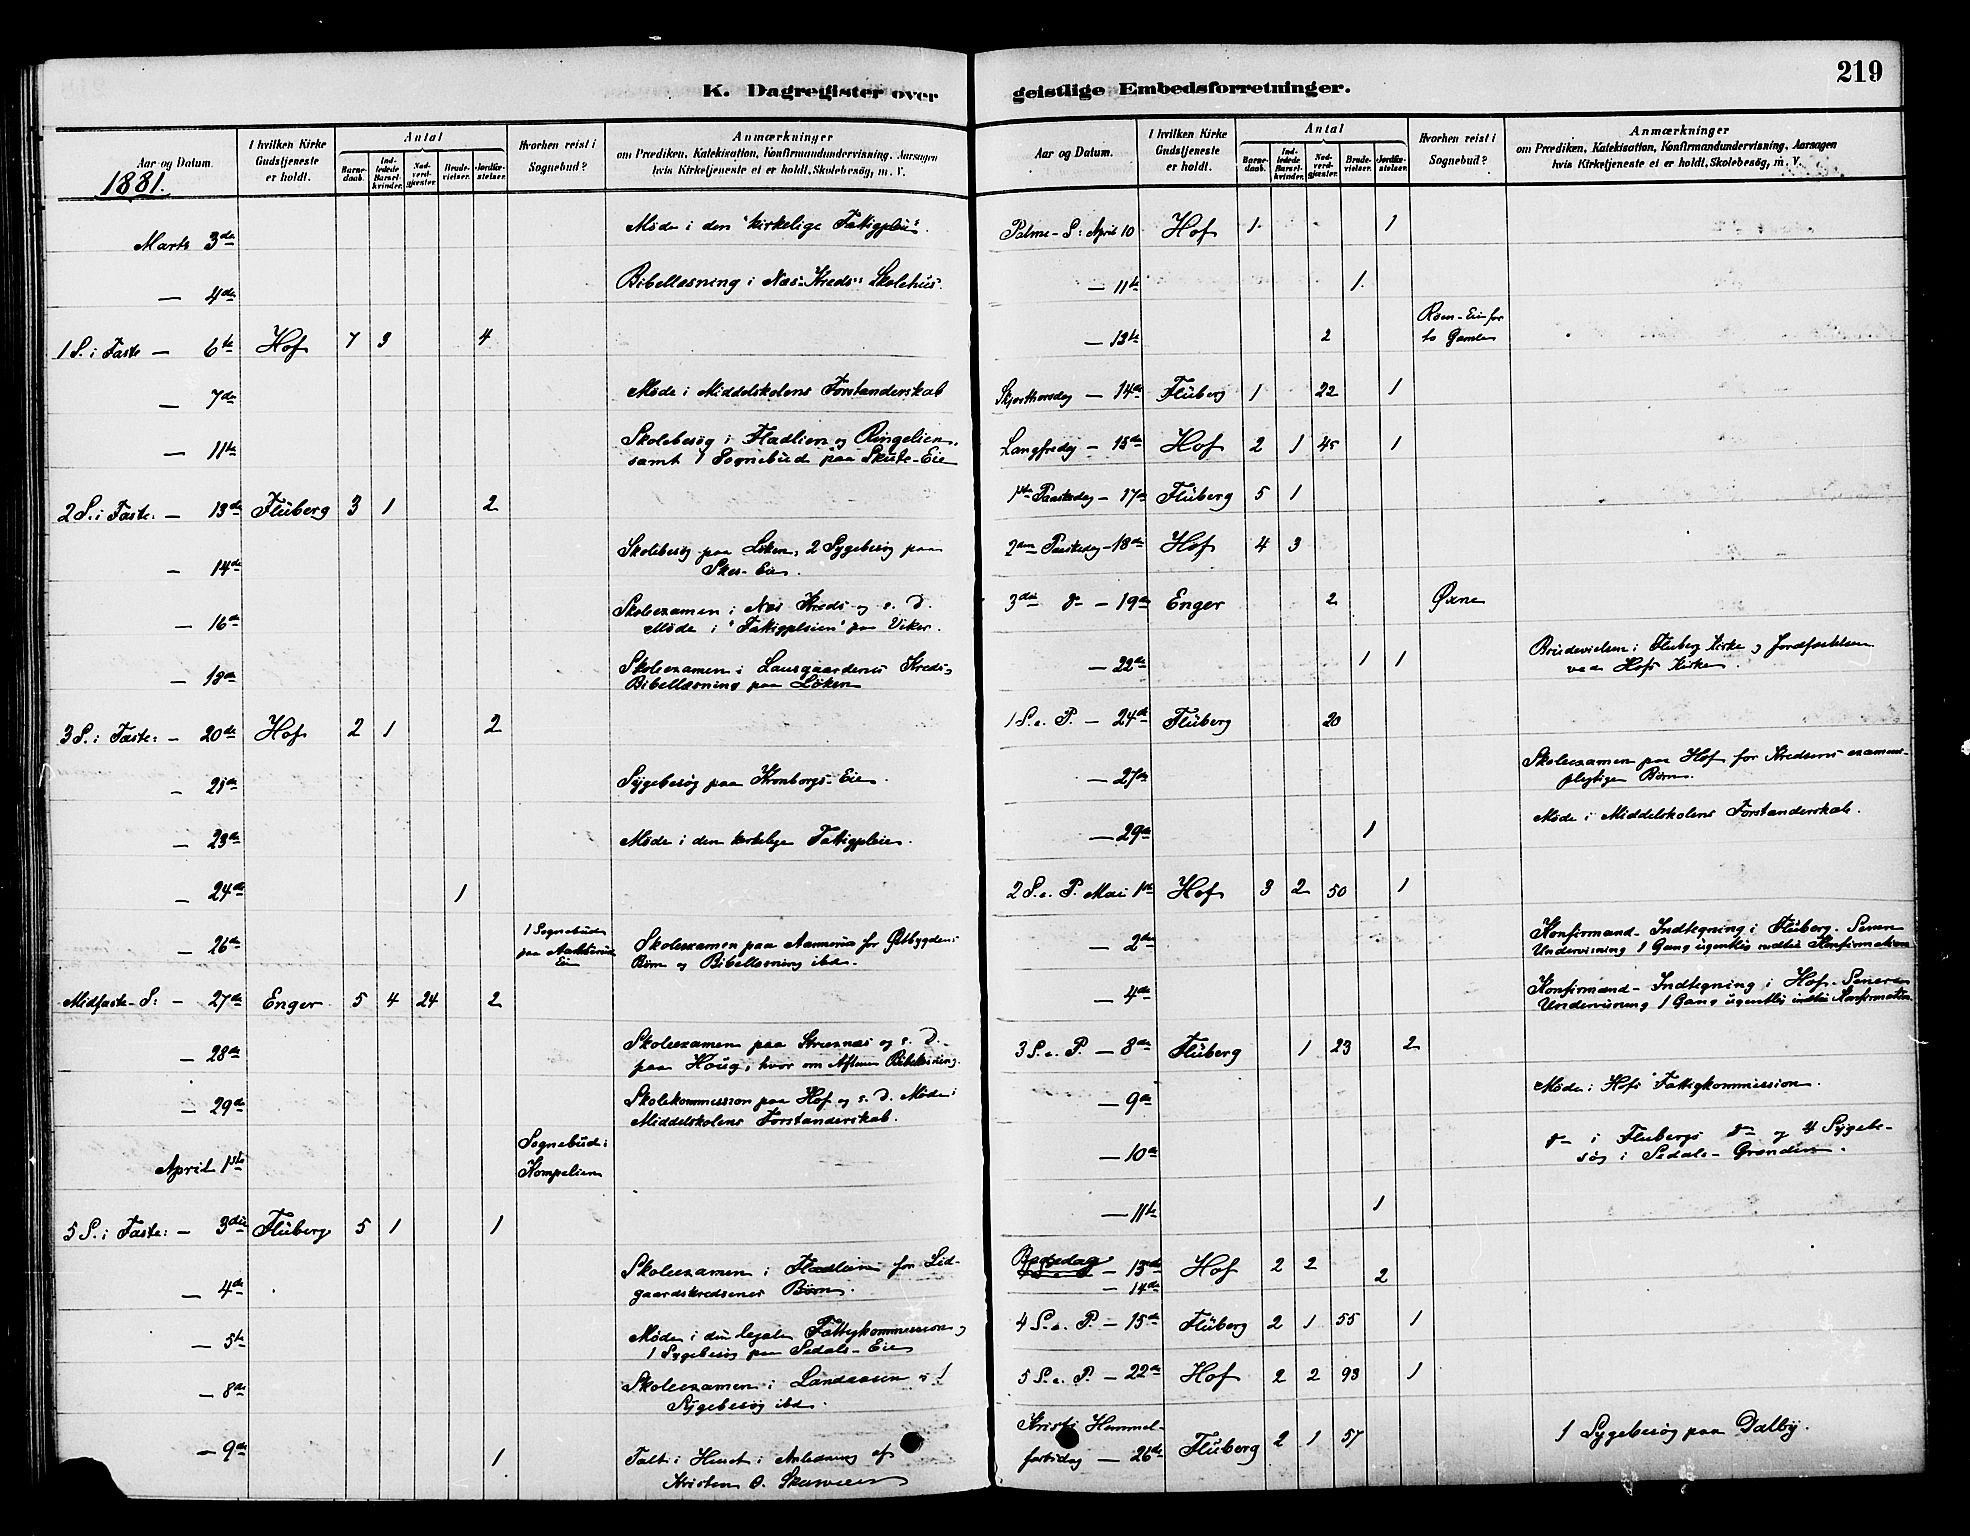 K. Dagregister over
Aar og Datum.
I hvilken Kirke Gudstjeneste er holdt.
Antal
Barnedaab.
Indledede Barselkvinder.
Nadverdgjæster.
Brudevielser.
Jordfæstelser.
Hvorhen reist i Sognebud?
Anmærkninger
om Prædiken, Katekisation, Konfirmandundervisning, Aarsagen
hvis Kirketjeneste ei er holdt, Skolebesøg, m. V.
1881.
Marts 3de Møde i den kirkelige Fattigpleie.
— 4de Bibellæsning i Næs-Kreds's Skolehus.
1 S. i Faste — 6te Hof 7 3 4
— 7de Møde i Middelskolens Forstanderskab
— 11te Skolebesøg i Fladlien og Ringelien,
samt 1 Sognebud paa Skute-Eie
2 S. i Faste: — 13de Fluberg 3 1 2
— 14de Skolebesøg paa Løken, 2 Sygebesøg paa
Skes-Eie.
— 16de Skoleexamen i Næs Kreds og s. D.
Møde i "Fattigpleien" paa Viker.
— 18de Skoleexamen i Lausgaardenes Kreds,
Bibellæsning paa Løken
3 S. i Faste: — 20de Hof 2 1 2
— 21de Sygebesøg paa Kronborgs-Eie.
— 23de Møde i den kirkelige Fattigpleie.
— 24de 1
— 26de 1 Sognebud paa Eie Skoleexamen paa for Østbygdens
Børn og Bibellæsning ibd.
Midfaste-S: — 27de Enger 5 4 24 2
— 28de Skoleexamen paa og s. D.
paa Houg, hvor om Aftenen Bibellæsning.
— 29de Skolekommission paa Hof og s. D. Møde i
Middelskolens Forstanderskab.
April 1ste Sognebud i Kompelien
5 S. i Faste: — 3die Fluberg 5 1 1
— 4de Skoleexamen i Fladlien for Lid-
gaardskredsenes Børn.
— 5te Møde i den legale Fattigkommission og
1 Sygebesøg paa Sedals-Eie
— 8de Skoleexamen i Landaasen og 1
Sygebesøg ibd.
— 9de 1 Talt i Huset i Anledning af
Kristen O.
geistlige Embedsforretninger.
219
Aar og Datum.
I hvilken Kirke Gudstjeneste er holdt.
Antal
Barnedaab.
Indledede Barselkvinder.
Nadverdgjæster.
Brudevielser.
Jordfæstelser.
Hvorhen reist i Sognebud?
Anmærkninger
om Prædiken, Katekisation, Konfirmandundervisning, Aarsagen
hvis Kirketjeneste ei er holdt, Skolebesøg, m. V.
Palme-S: April 10 Hof 1 1
— 11te 1
— 13te 2 Roen-Eie for to Gamle
Skjærthorsdag — 14de Fluberg 1 22 1
Langfredag — 15de Hof 2 1 45 1
1ste Paaskedag — 17de Fluberg 5 1
2den Paaskedag — 18de Hof 4 3
3die do — 19de Enger 2 Øxne
— 22de 1 1 Brudevielsen i Fluberg Kirke og Jordfæstelsen
ved Hofs Kirke.
1 S. e. P. — 24de Fluberg 20
— 27de Skoleexamen paa Hof for Kredsens examens-
pligtige Børn.
— 29de 1 Møde i Middelskolens Forstanderskab.
2 S. e. P. Mai 1ste Hof 3 2 50 1
— 2den Konfirmand-Indtegning i Fluberg. Senere
Undervisning 1 Gang ugentlig indtil Konfirmationen
— 4de Konfirmand-Indtegning i Hof. Senere
Undervisning 1 Gang ugentlig indtil Konfirmationen
3 S. e. P. — 8de Fluberg 1 23 2
— 9de Møde i Hofs Fattigkommission.
— 10de do i Flubergs do og 4 Sygebe-
søg i Sedals-Grænden.
— 11te 1
Bededag — 13de Hof 2 2
— 14de 2
4 S. e. P. — 15de Fluberg 2 1 55 1
5 S. e. P. — 22de Hof 2 2 93 1
Kristi Himmel-
fartsdag — 26de Fluberg 2 1 57 1 Sygebesøg paa Dalby.